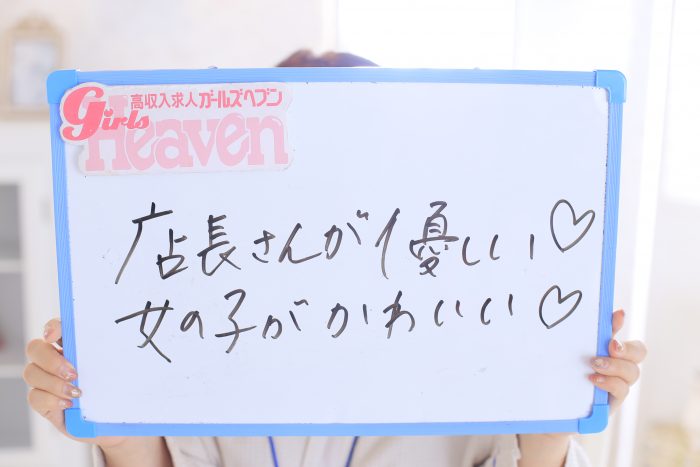 高収入求人ガールズヘブン
Girls
Heaven
店長さんが優しい♡
女の子がかわいい♡